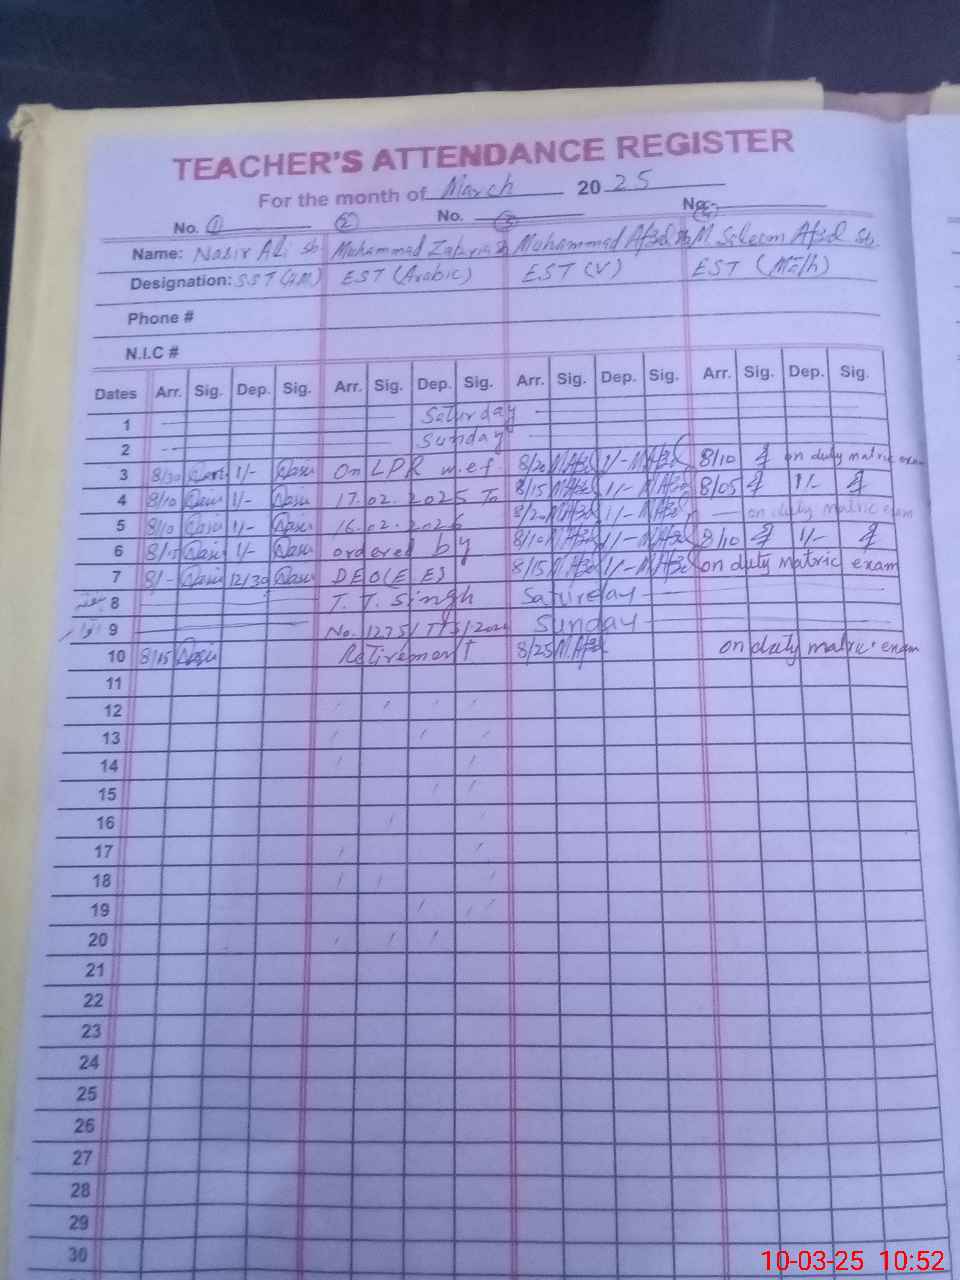 TEACHER'S ATTENDANCE REGISTER
For the month of March 2025
No. 1 2 No. 3 No. 4
Name: Nasir Ali Sb Muhammad Zakria Sb Muhammad Afzal Sb M Saleem Afzal Sb.
Designation: SST (HM) EST (Arabic) EST (V) EST (Math)
Phone #
N.I.C #
Dates Arr. Sig. Dep. Sig. Arr. Sig. Dep. Sig. Arr. Sig. Dep. Sig. Arr. Sig. Dep. Sig.
1 Saturday
2 Sunday
3 8/30 1/- On LPR w.e.f. 8/20 M.Afzal 1/- M.Afzal 8/10 on duty matric exam
4 8/10 1/- 17.02.2025 To 8/15 M.Afzal 1/- M.Afzal 8/05 1/-
5 8/10 1/- 16.02.2026 8/20 M.Afzal 1/- M.Afzal on duty matric exam
6 1/- ordered by 8/10 M.Afzal 1/- M.Afzal 8/10 1/-
7 8/- 12/30 DEO(E ES) 8/15 M.Afzal 1/- M.Afzal on duty matric exam
ہفتہ 8 T.T.Singh Saturday
اتوار 9 No. 1275/TTS/ Sunday
10 8/15 Retirement 8/25 M.Afzal on duty matric exam
11
12
13
14
15
16
17
18
19
20
21
22
23
24
25
26
27
28
29
30
10-03-25 10:52